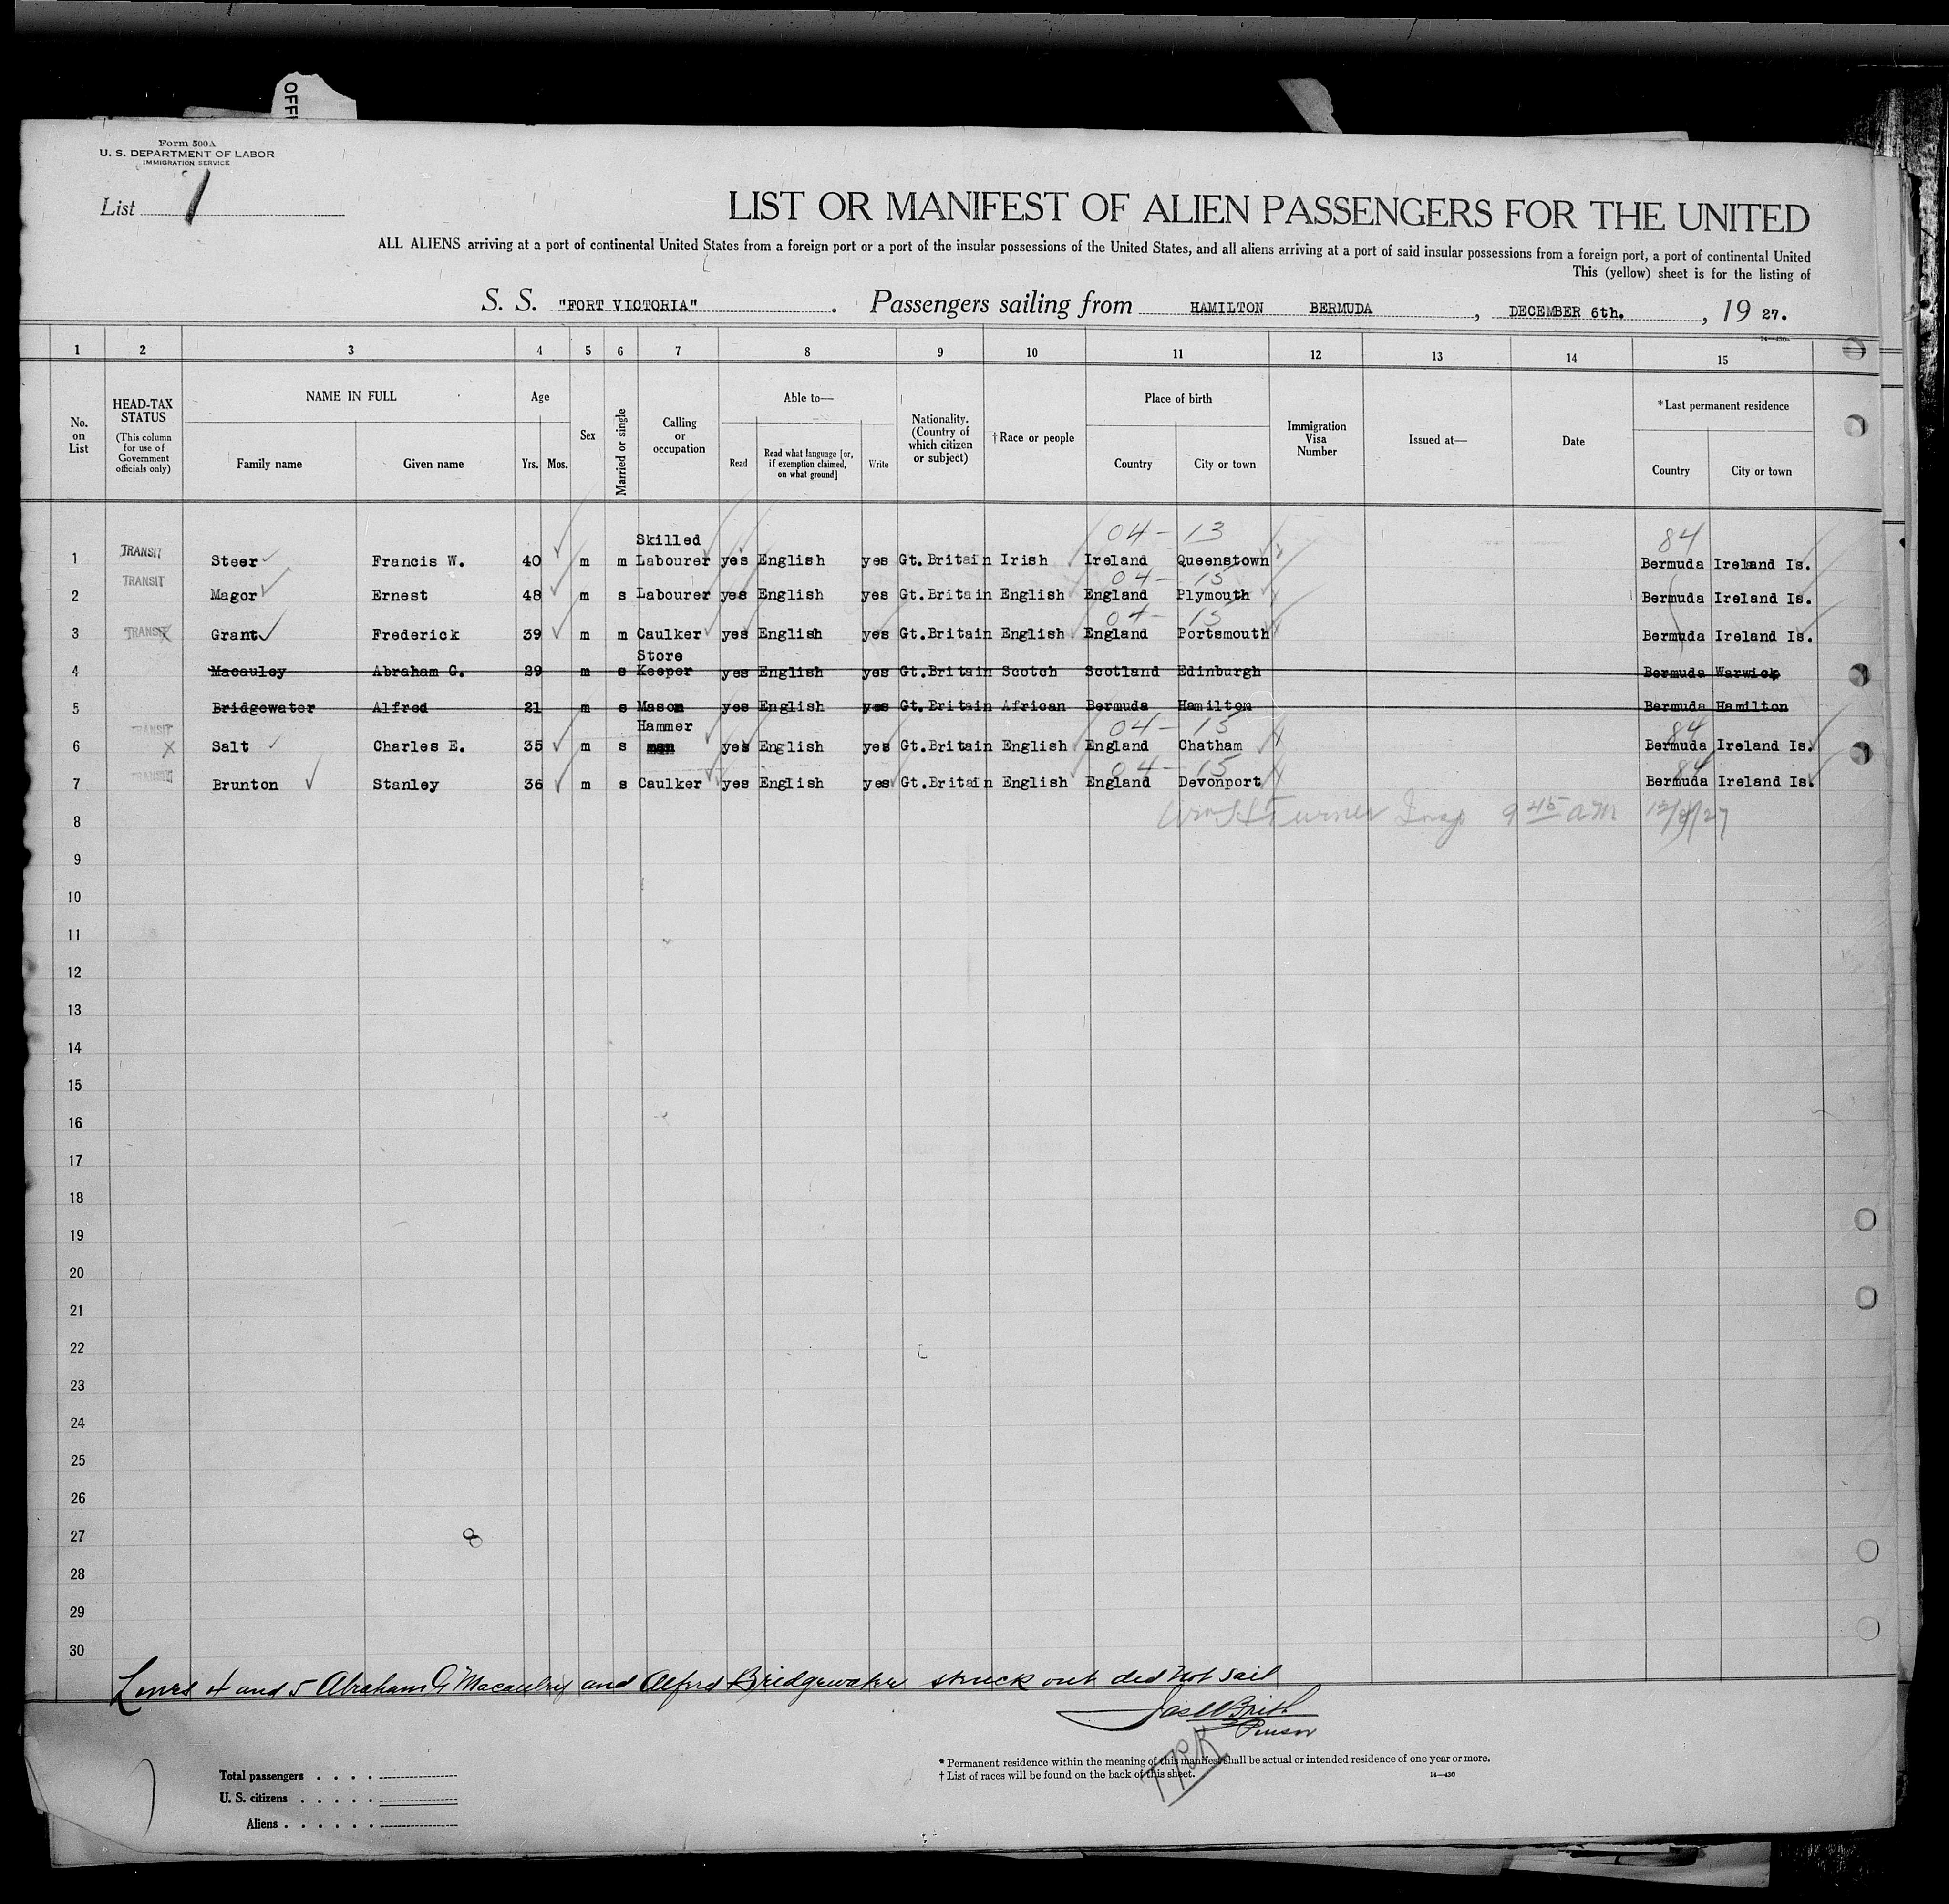 OFFI
Form 500A
U. S. DEPARTMENT OF LABOR
IMMIGRATION SERVICE
List 1
LIST OR MANIFEST OF ALIEN PASSENGERS FOR THE UNITED
ALL ALIENS arriving at a port of continental United States from a foreign port or a port of the insular possessions of the United States, and all aliens arriving at a port of said insular possessions from a foreign port, a port of continental United
This (yellow) sheet is for the listing of
S. S. "FORT VICTORIA" . Passengers sailing from HAMILTON BERMUDA , DECEMBER 6th. , 19 27.
1 2 3 4 5 6 7 8 9 10 11 12 13 14 15
No. on List
HEAD-TAX STATUS
(This column for use of Government officials only)
NAME IN FULL
Family name Given name
Age
Yrs. Mos.
Sex
Married or single
Calling or occupation
Able to—
Read
Read what language [or, if exemption claimed, on what ground]
Write
Nationality. (Country of which citizen or subject)
† Race or people
Place of birth
Country City or town
Immigration Visa Number
Issued at—
Date
*Last permanent residence
Country City or town
Skilled 04 - 13 84
1 TRANSIT Steer Francis W. 40 m m Labourer yes English yes Gt.Britain Irish Ireland Queenstown Bermuda Ireland Is.
04 - 15
2 TRANSIT Magor Ernest 48 m s Labourer yes English yes Gt.Britain English England Plymouth Bermuda Ireland Is.
04 - 15
3 TRANSIT Grant Frederick 39 m m Caulker yes English yes Gt.Britain English England Portsmouth Bermuda Ireland Is.
Store
4 Macauley Abraham G. 29 m s Keeper yes English yes Gt.Britain Scotch Scotland Edinburgh Bermuda Warwick
5 Bridgewater Alfred 21 m s Mason yes English yes Gt.Britain African Bermuda Hamilton Bermuda Hamilton
TRANSIT Hammer 04 - 15 84
6 X Salt Charles E. 35 m s man yes English yes Gt.Britain English England Chatham Bermuda Ireland Is.
TRANSIT 04 - 15 84
7 Brunton Stanley 36 m s Caulker yes English yes Gt.Britain English England Devonport Bermuda Ireland Is.
8 Turner Insp 9 45 AM 12/8/27
9
10
11
12
13
14
15
16
17
18
19
20
21
22
23
24
25
26
27
28
29
30
Lines 4 and 5 Abraham G Macauley and Alfred Bridgewater struck out did not sail
Purser
* Permanent residence within the meaning of this manifest shall be actual or intended residence of one year or more.
† List of races will be found on the back of this sheet. 14—430
Total passengers . . . .
U. S. citizens . . . . .
Aliens . . . . . .